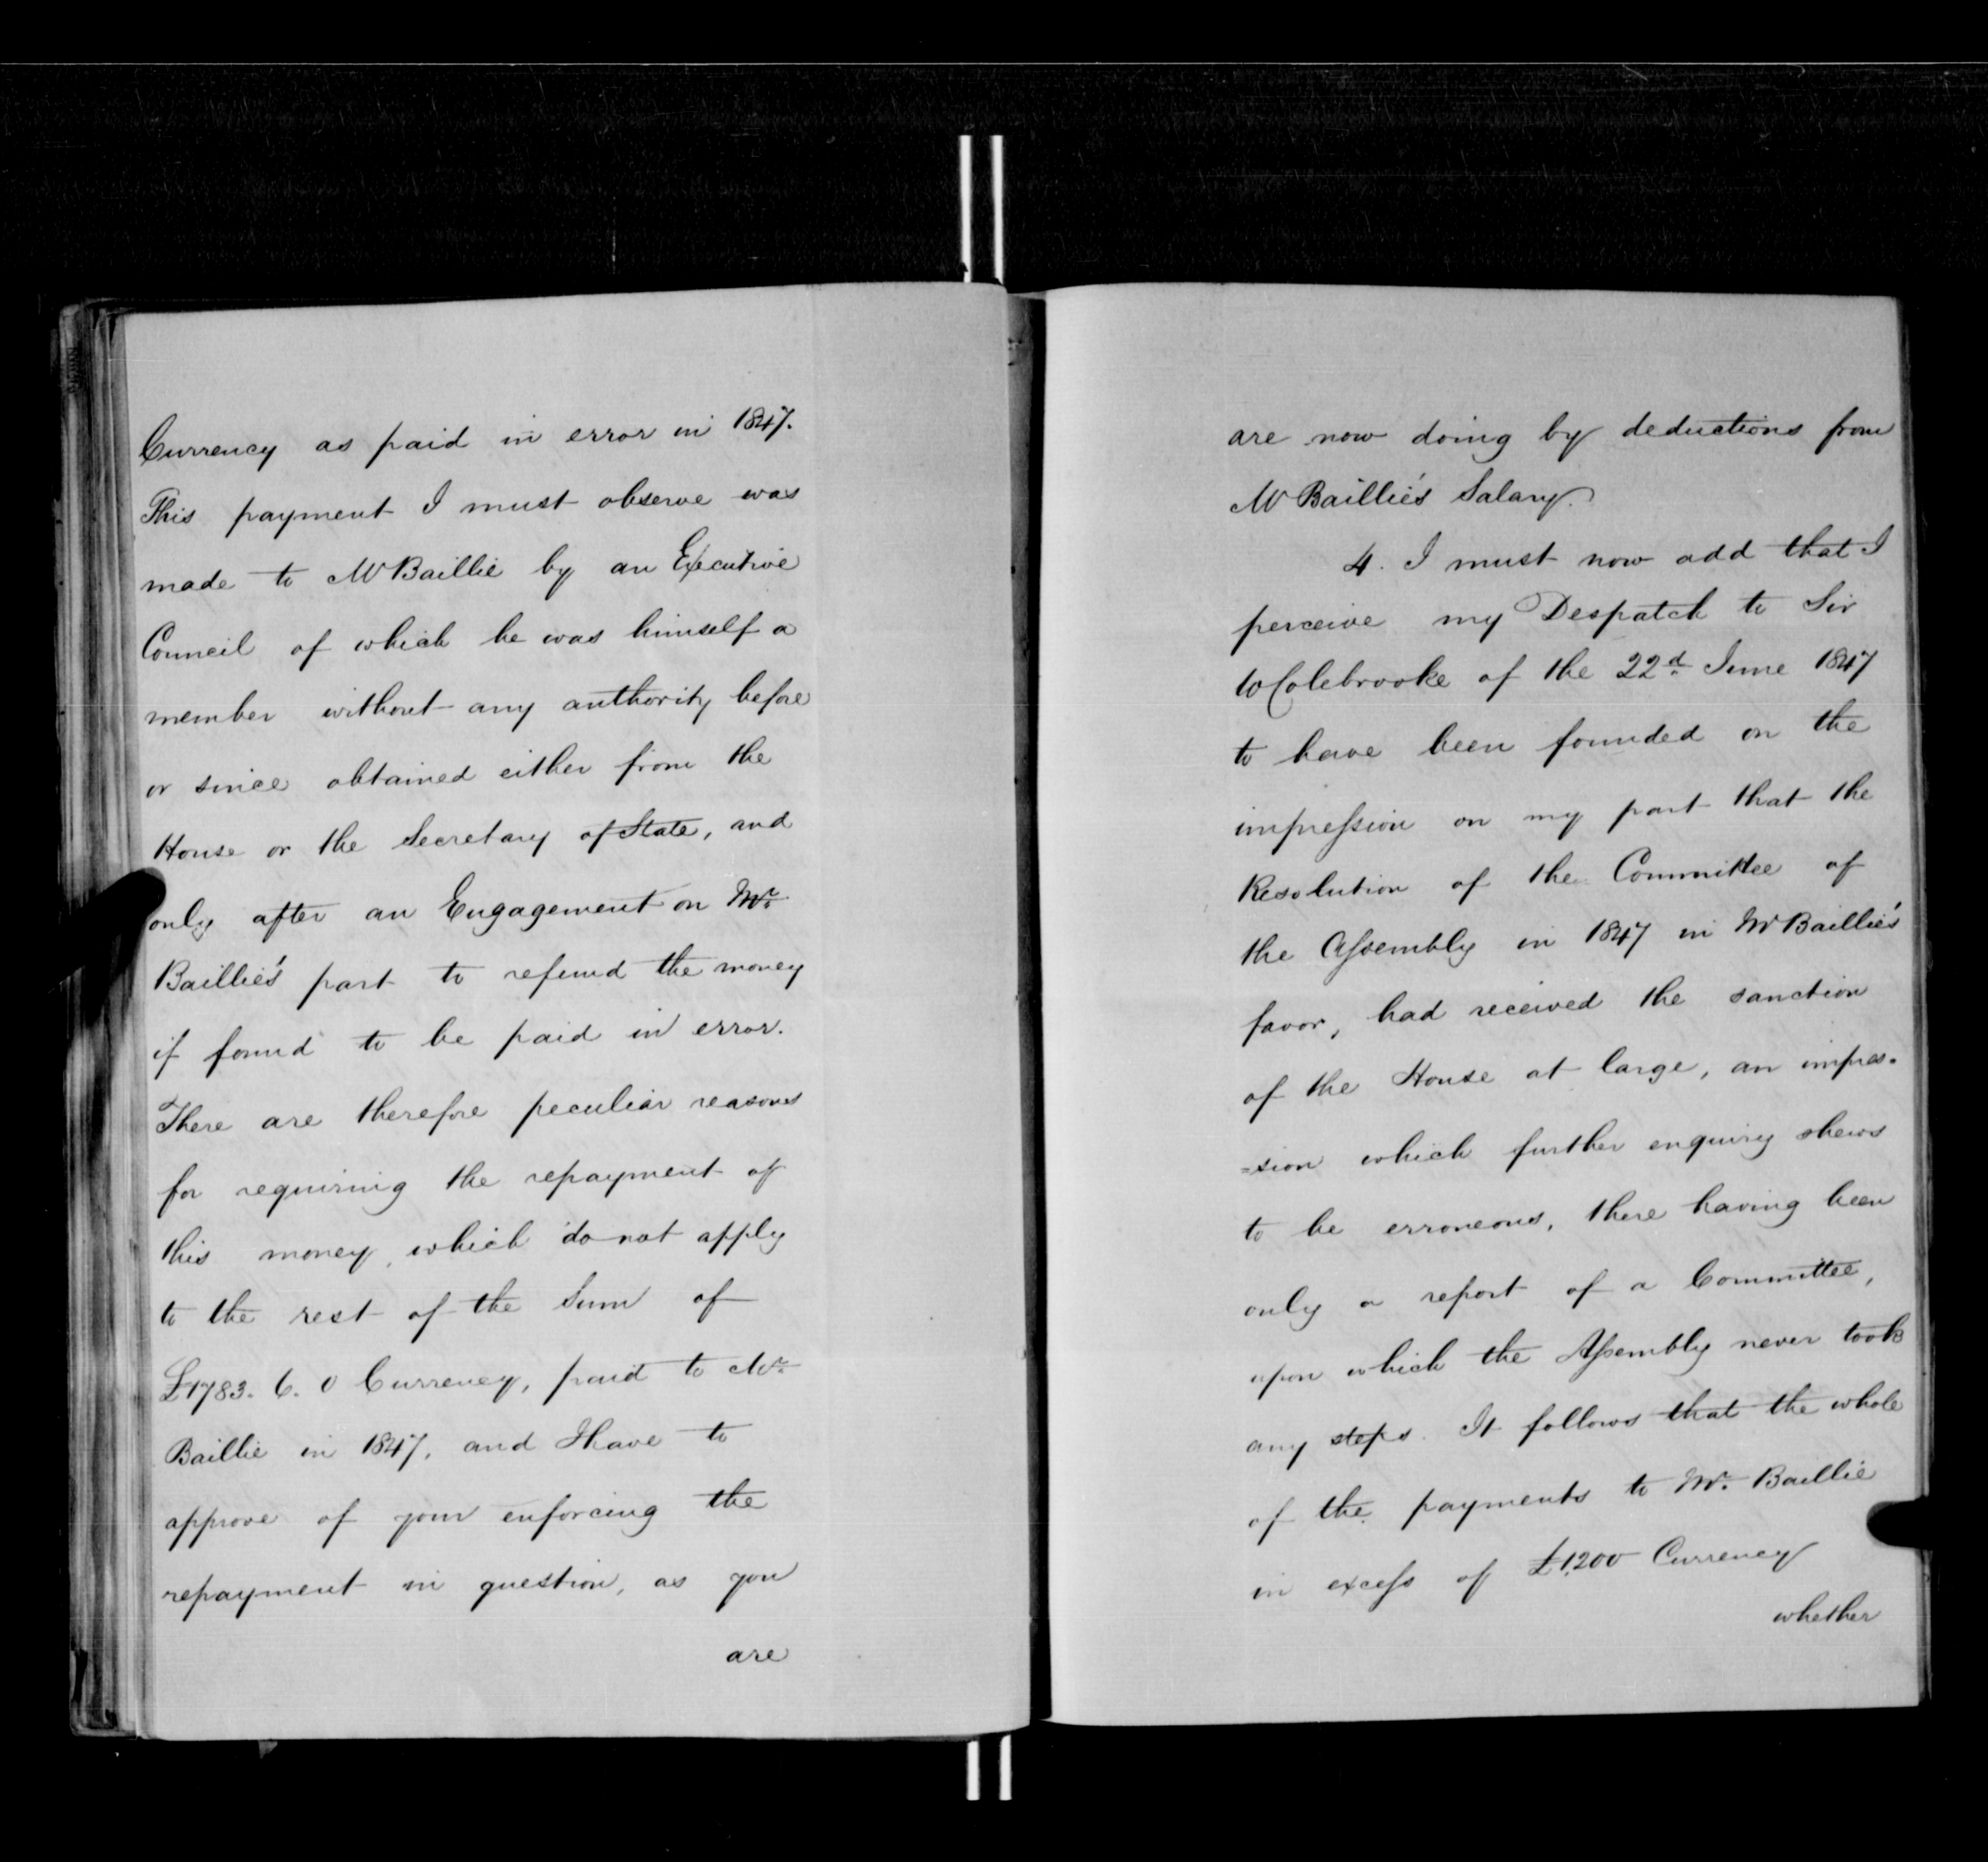 Currency as paid in error in 1847.
This payment I must observe was
made to Mr Baillie by an Executive
Council of which he was himself a
member without any authority before
or since obtained either from the
House or the Secretary of State, and
only after an Engagement on Mr.
Baillie's part to refund the money
if found to be paid in error.
There are therefore peculiar reasons
for requiring the repayment of
this money, which do not apply
to the rest of the Sum of
£1783. 6. 0 Currency, paid to Mr.
Baillie in 1847, and I have to
approve of your enforcing the
repayment in question, as you
are
are now doing by deductions from
Mr Baillie's Salary.
4. I must now add that I
perceive my Despatch to Sir
W Colebrooke of the 22d. June 1847
to have been founded on the
impression on my part that the
Resolution of the Committee of
the Assembly in 1847 in Mr Baillie's
favor, had received the sanction
of the House at large, an impres-
=sion which further enquiry shews
to be erroneous, there having been
only a report of a Committee,
upon which the Assembly never took
any steps. It follows that the whole
of the payments to Mr. Baillie
in excess of £1,200 Currency
whether